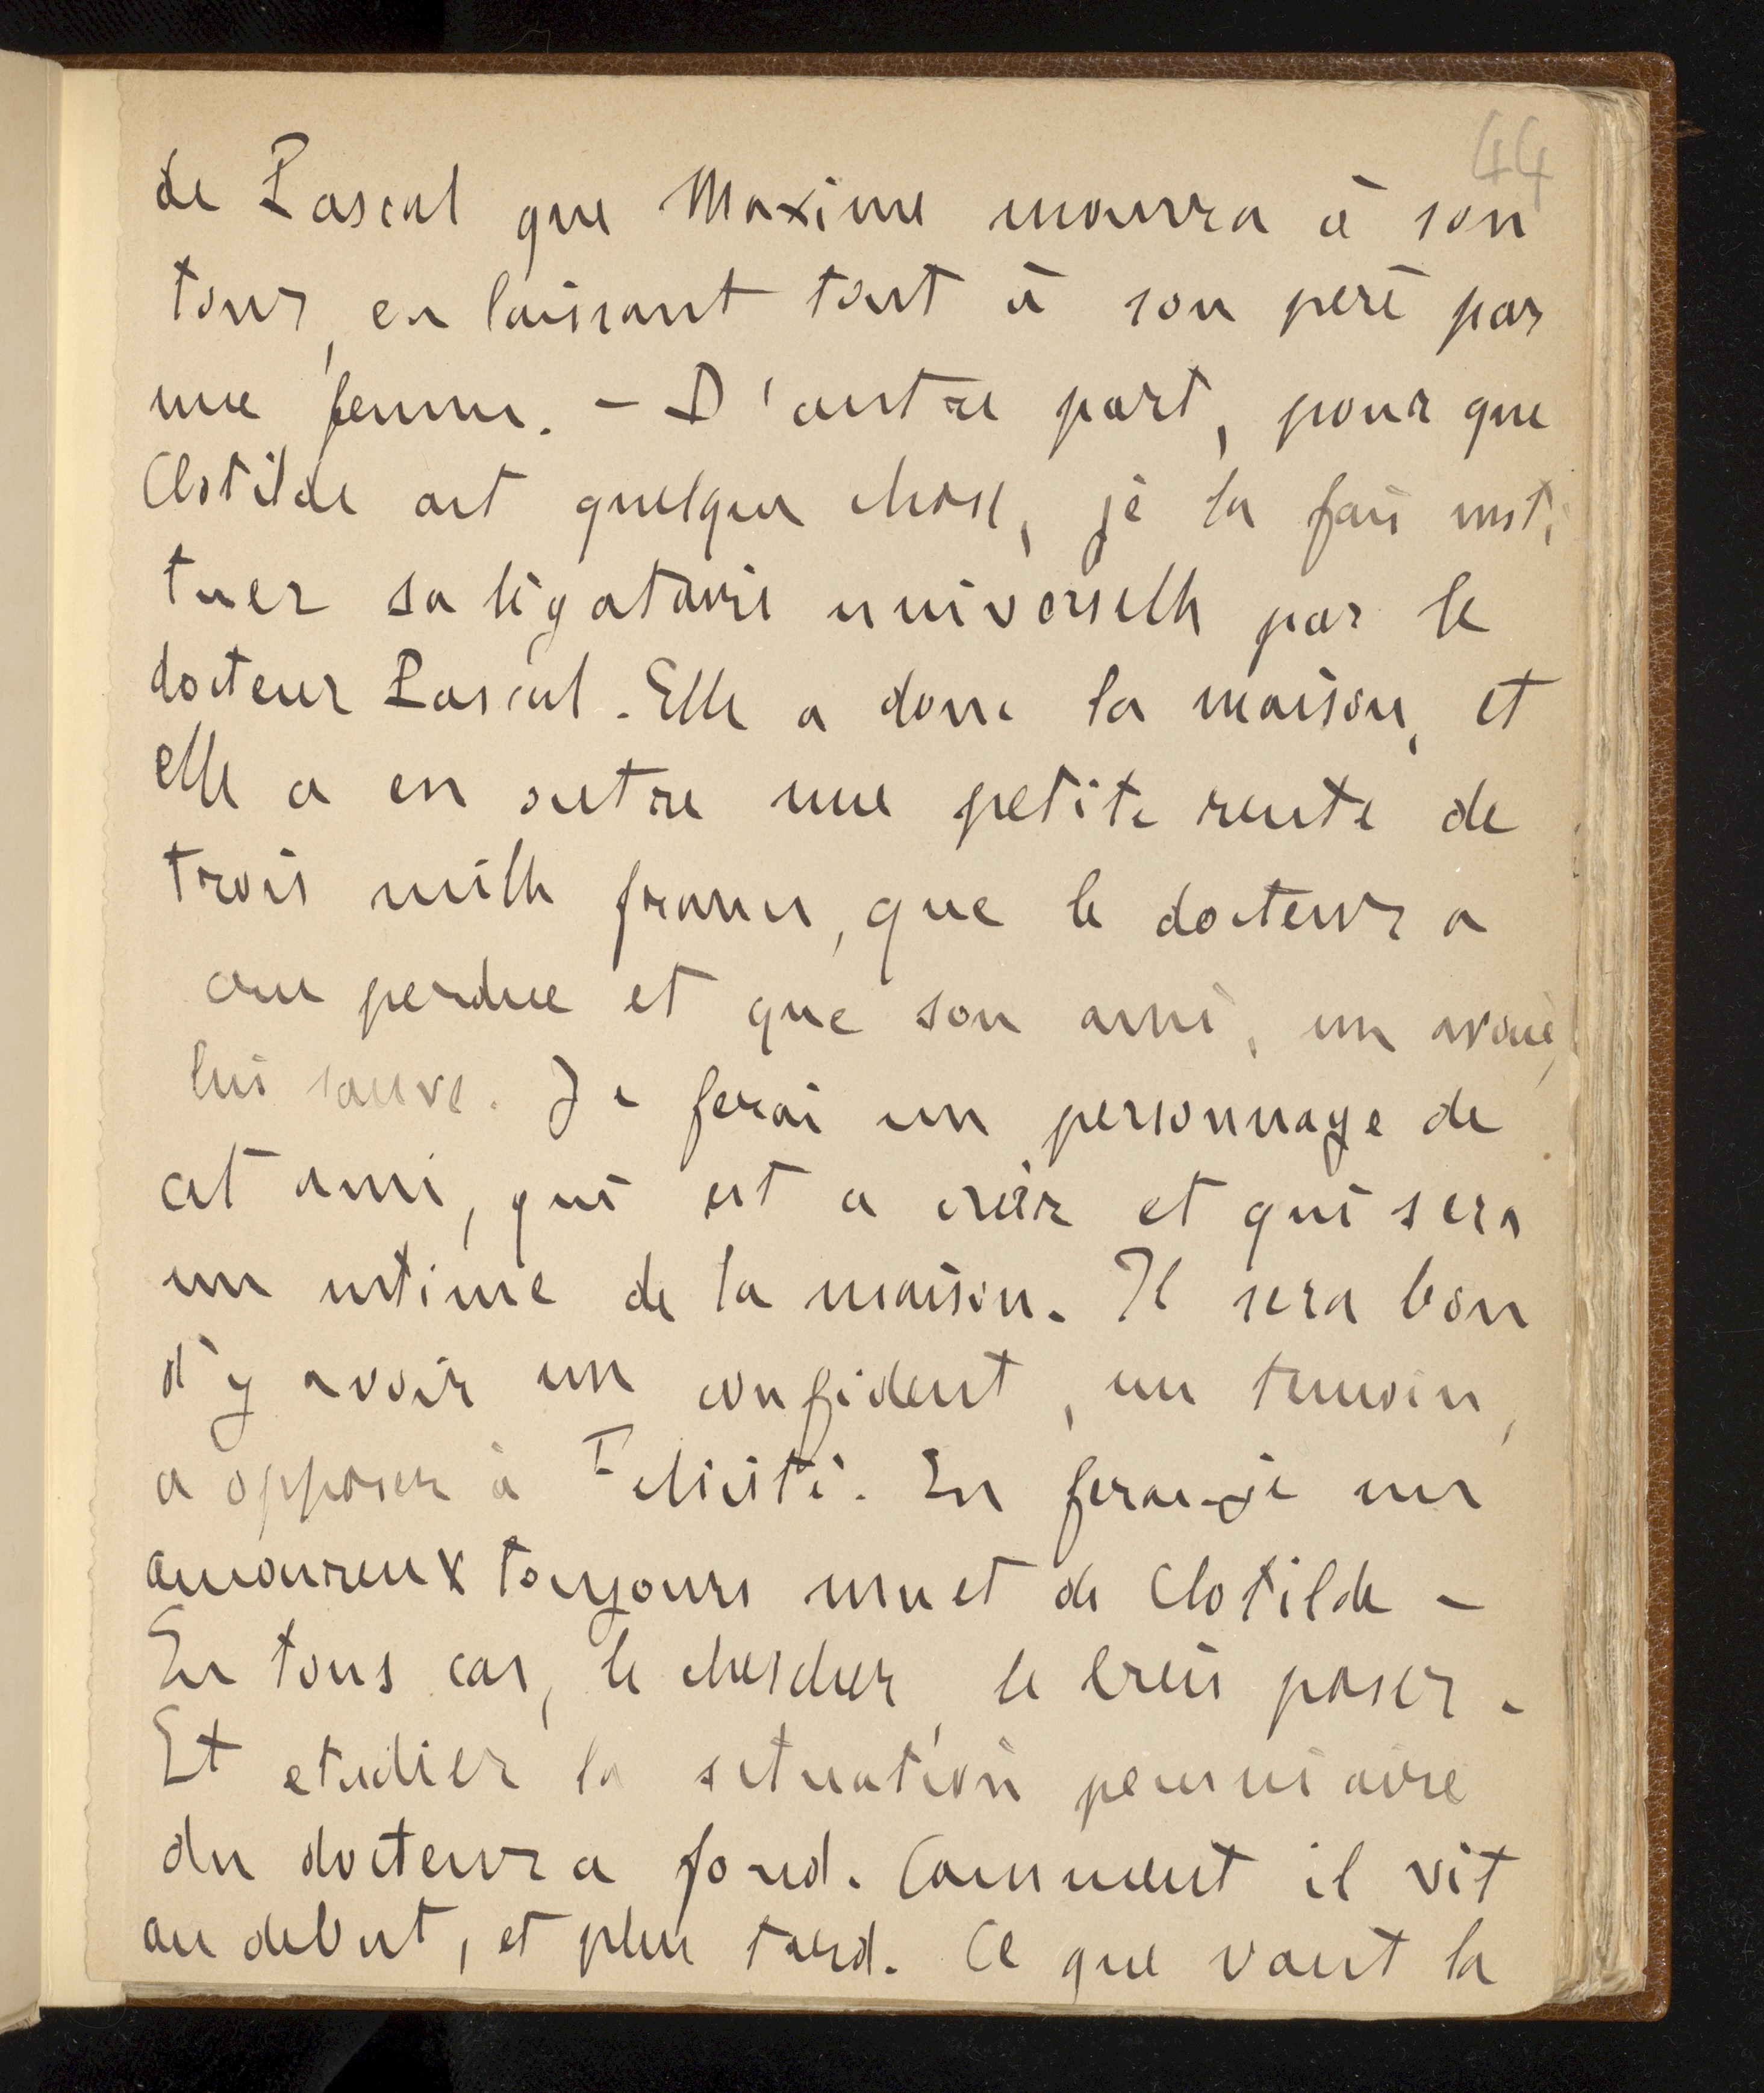 44
de Pascal que Maxime mourra à son
tour, en laissant tout à son père par
une femme. — D'autre part, pour que
Clotilde ait quelque chose, je la fais insti
tuer sa légataire universelle par le
docteur Pascal. Elle a donc la maison, et
elle a en outre une petite rente de
trois mille francs, que le docteur a
cru perdue et que son ami, un avoué,
lui sauve. Je ferai un personnage de
cet ami, qui est a créer et qui sera
un intime de la maison. Il sera bon
d'y avoir un confident, un temoin,
a opposer à Félicité. En ferai-je un
amoureux toujours muet de Clotilde —
En tous cas, le chercher, le bien poser.
Et etudier la situation pecuniaire
du docteur a fond. Comment il vit
au debut, et plus tard. Ce que vaut la